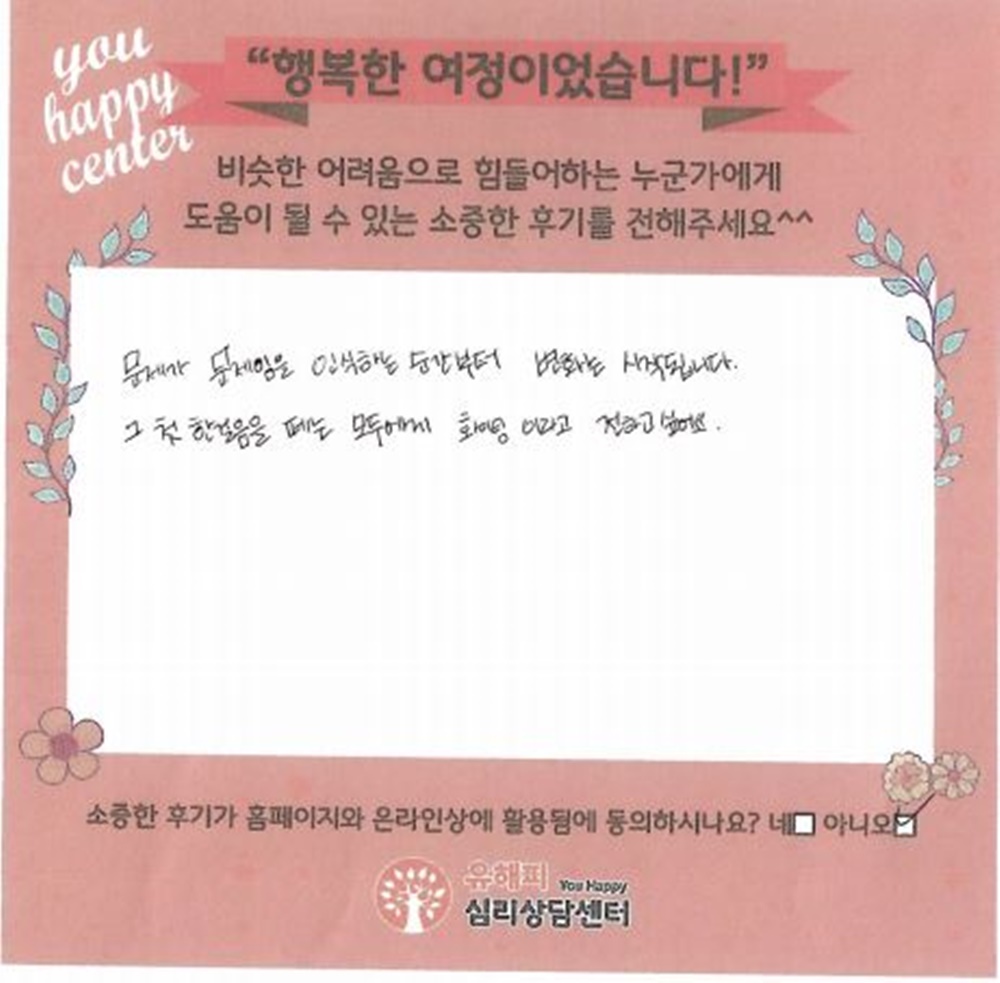 you
happy
center
“행복한 여정이었습니다!”
비슷한 어려움으로 힘들어하는 누군가에게
도움이 될 수 있는 소중한 후기를 전해주세요^^
문제가 문제임을 인식하는 순간부터 변화는 시작됩니다.
그 첫 한걸음을 떼는 모두에게 화이팅 이라고 전하고 싶어요.
소중한 후기가 홈페이지와 온라인상에 활용됨에 동의하시나요? 네☐ 아니오☑
유해피 You Happy
심리상담센터